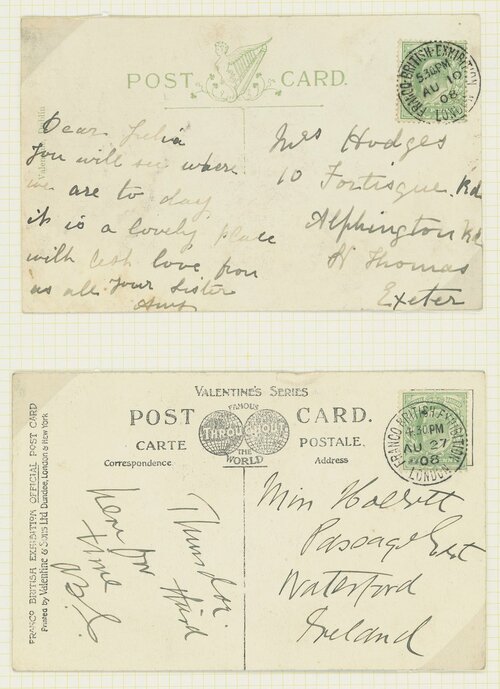 POST CARD.
FRANCO-BRITISH-EXHIBITION
5.30PM
AU 10
08
LONDON
Valentine Dublin
Dear Julia
You will see where
we are to day
it is a lovely place
with best love from
us all Your Sister
Amy
Mrs Hodges
10 Fortisgue Rd
Alphington Rd
St Thomas
Exeter
VALENTINE'S SERIES
POST CARD.
FAMOUS
THROUGHOUT
THE
WORLD
CARTE POSTALE.
Correspondence Address
FRANCO-BRITISH-EXHIBITION
4.30PM
AU 27
08
LONDON
FRANCO BRITISH EXHIBITION OFFICIAL POST CARD
Printed by Valentine & Sons Ltd Dundee, London & New York
Thursday.
here for
time
Miss
Passage East
Waterford
Ireland